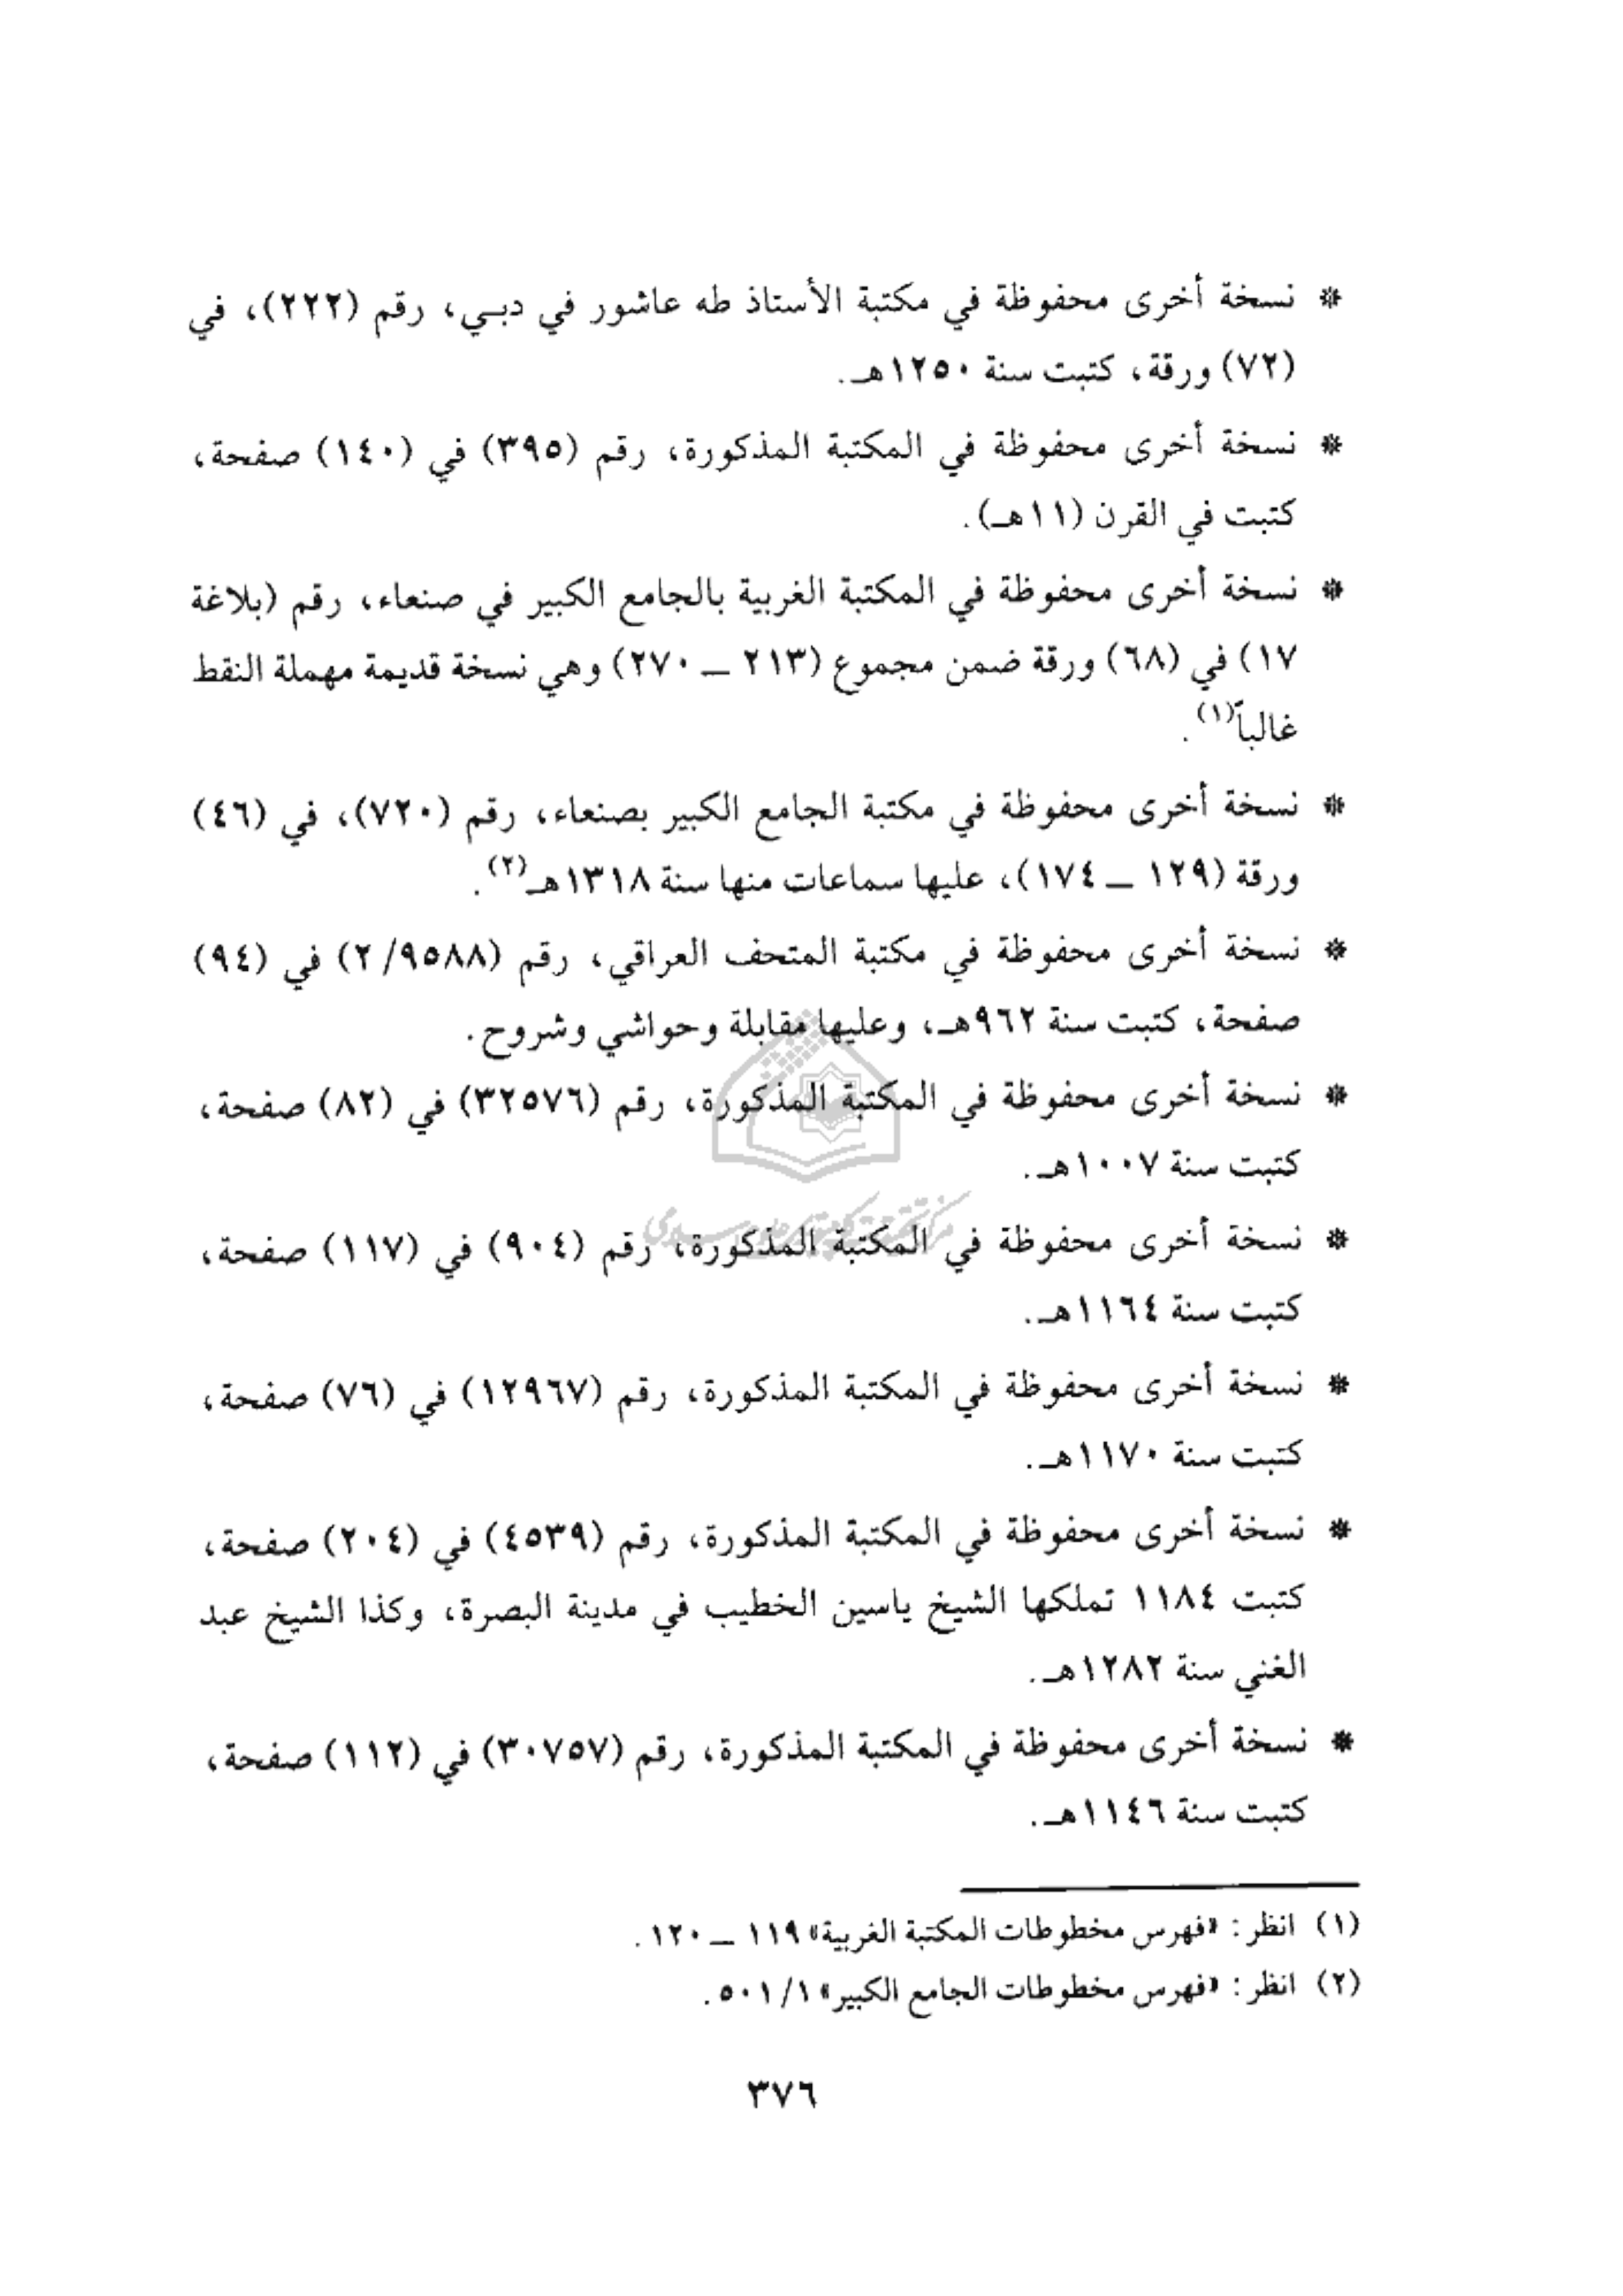 * نسخة أخرى محفوظة في مكتبة الأستاذ طه عاشور في دبي، رقم (٢٢٢)، في
(٧٢) ورقة، كتبت سنة ١٢٥٠هـ.
* نسخة أخرى محفوظة في المكتبة المذكورة، رقم (٣٩٥) في (١٤٠) صفحة،
كتبت في القرن (١١هـ).
* نسخة أخرى محفوظة في المكتبة الغربية بالجامع الكبير في صنعاء، رقم (بلاغة
١٧) في (٦٨) ورقة ضمن مجموع (٢١٣ ـ ٢٧٠) وهي نسخة قديمة مهملة النقط
غالباً(١).
* نسخة أخرى محفوظة في مكتبة الجامع الكبير بصنعاء، رقم (٧٢٠)، في (٤٦)
ورقة (١٢٩ ـ ١٧٤)، عليها سماعات منها سنة ١٣١٨هـ(٢).
* نسخة أخرى محفوظة في مكتبة المتحف العراقي، رقم (٢/٩٥٨٨) في (٩٤)
صفحة، كتبت سنة ٩٦٢هـ، وعليها مقابلة وحواشي وشروح.
* نسخة أخرى محفوظة في المكتبة المذكورة، رقم (٣٢٥٧٦) في (٨٢) صفحة،
كتبت سنة ١٠٠٧هـ.
* نسخة أخرى محفوظة في المكتبة المذكورة، رقم (٩٠٤) في (١١٧) صفحة،
كتبت سنة ١١٦٤هـ.
* نسخة أخرى محفوظة في المكتبة المذكورة، رقم (١٢٩٦٧) في (٧٦) صفحة،
كتبت سنة ١١٧٠هـ.
* نسخة أخرى محفوظة في المكتبة المذكورة، رقم (٤٥٣٩) في (٢٠٤) صفحة،
كتبت ١١٨٤ تملكها الشيخ ياسين الخطيب في مدينة البصرة، وكذا الشيخ عبد
الغني سنة ١٢٨٢هـ.
* نسخة أخرى محفوظة في المكتبة المذكورة، رقم (٣٠٧٥٧) في (١١٢) صفحة،
كتبت سنة ١١٤٦هـ.
(١) انظر: «فهرس مخطوطات المكتبة الغربية» ١١٩ ـ ١٢٠.
(٢) انظر: «فهرس مخطوطات الجامع الكبير» ٥٠١/١.
٣٧٦